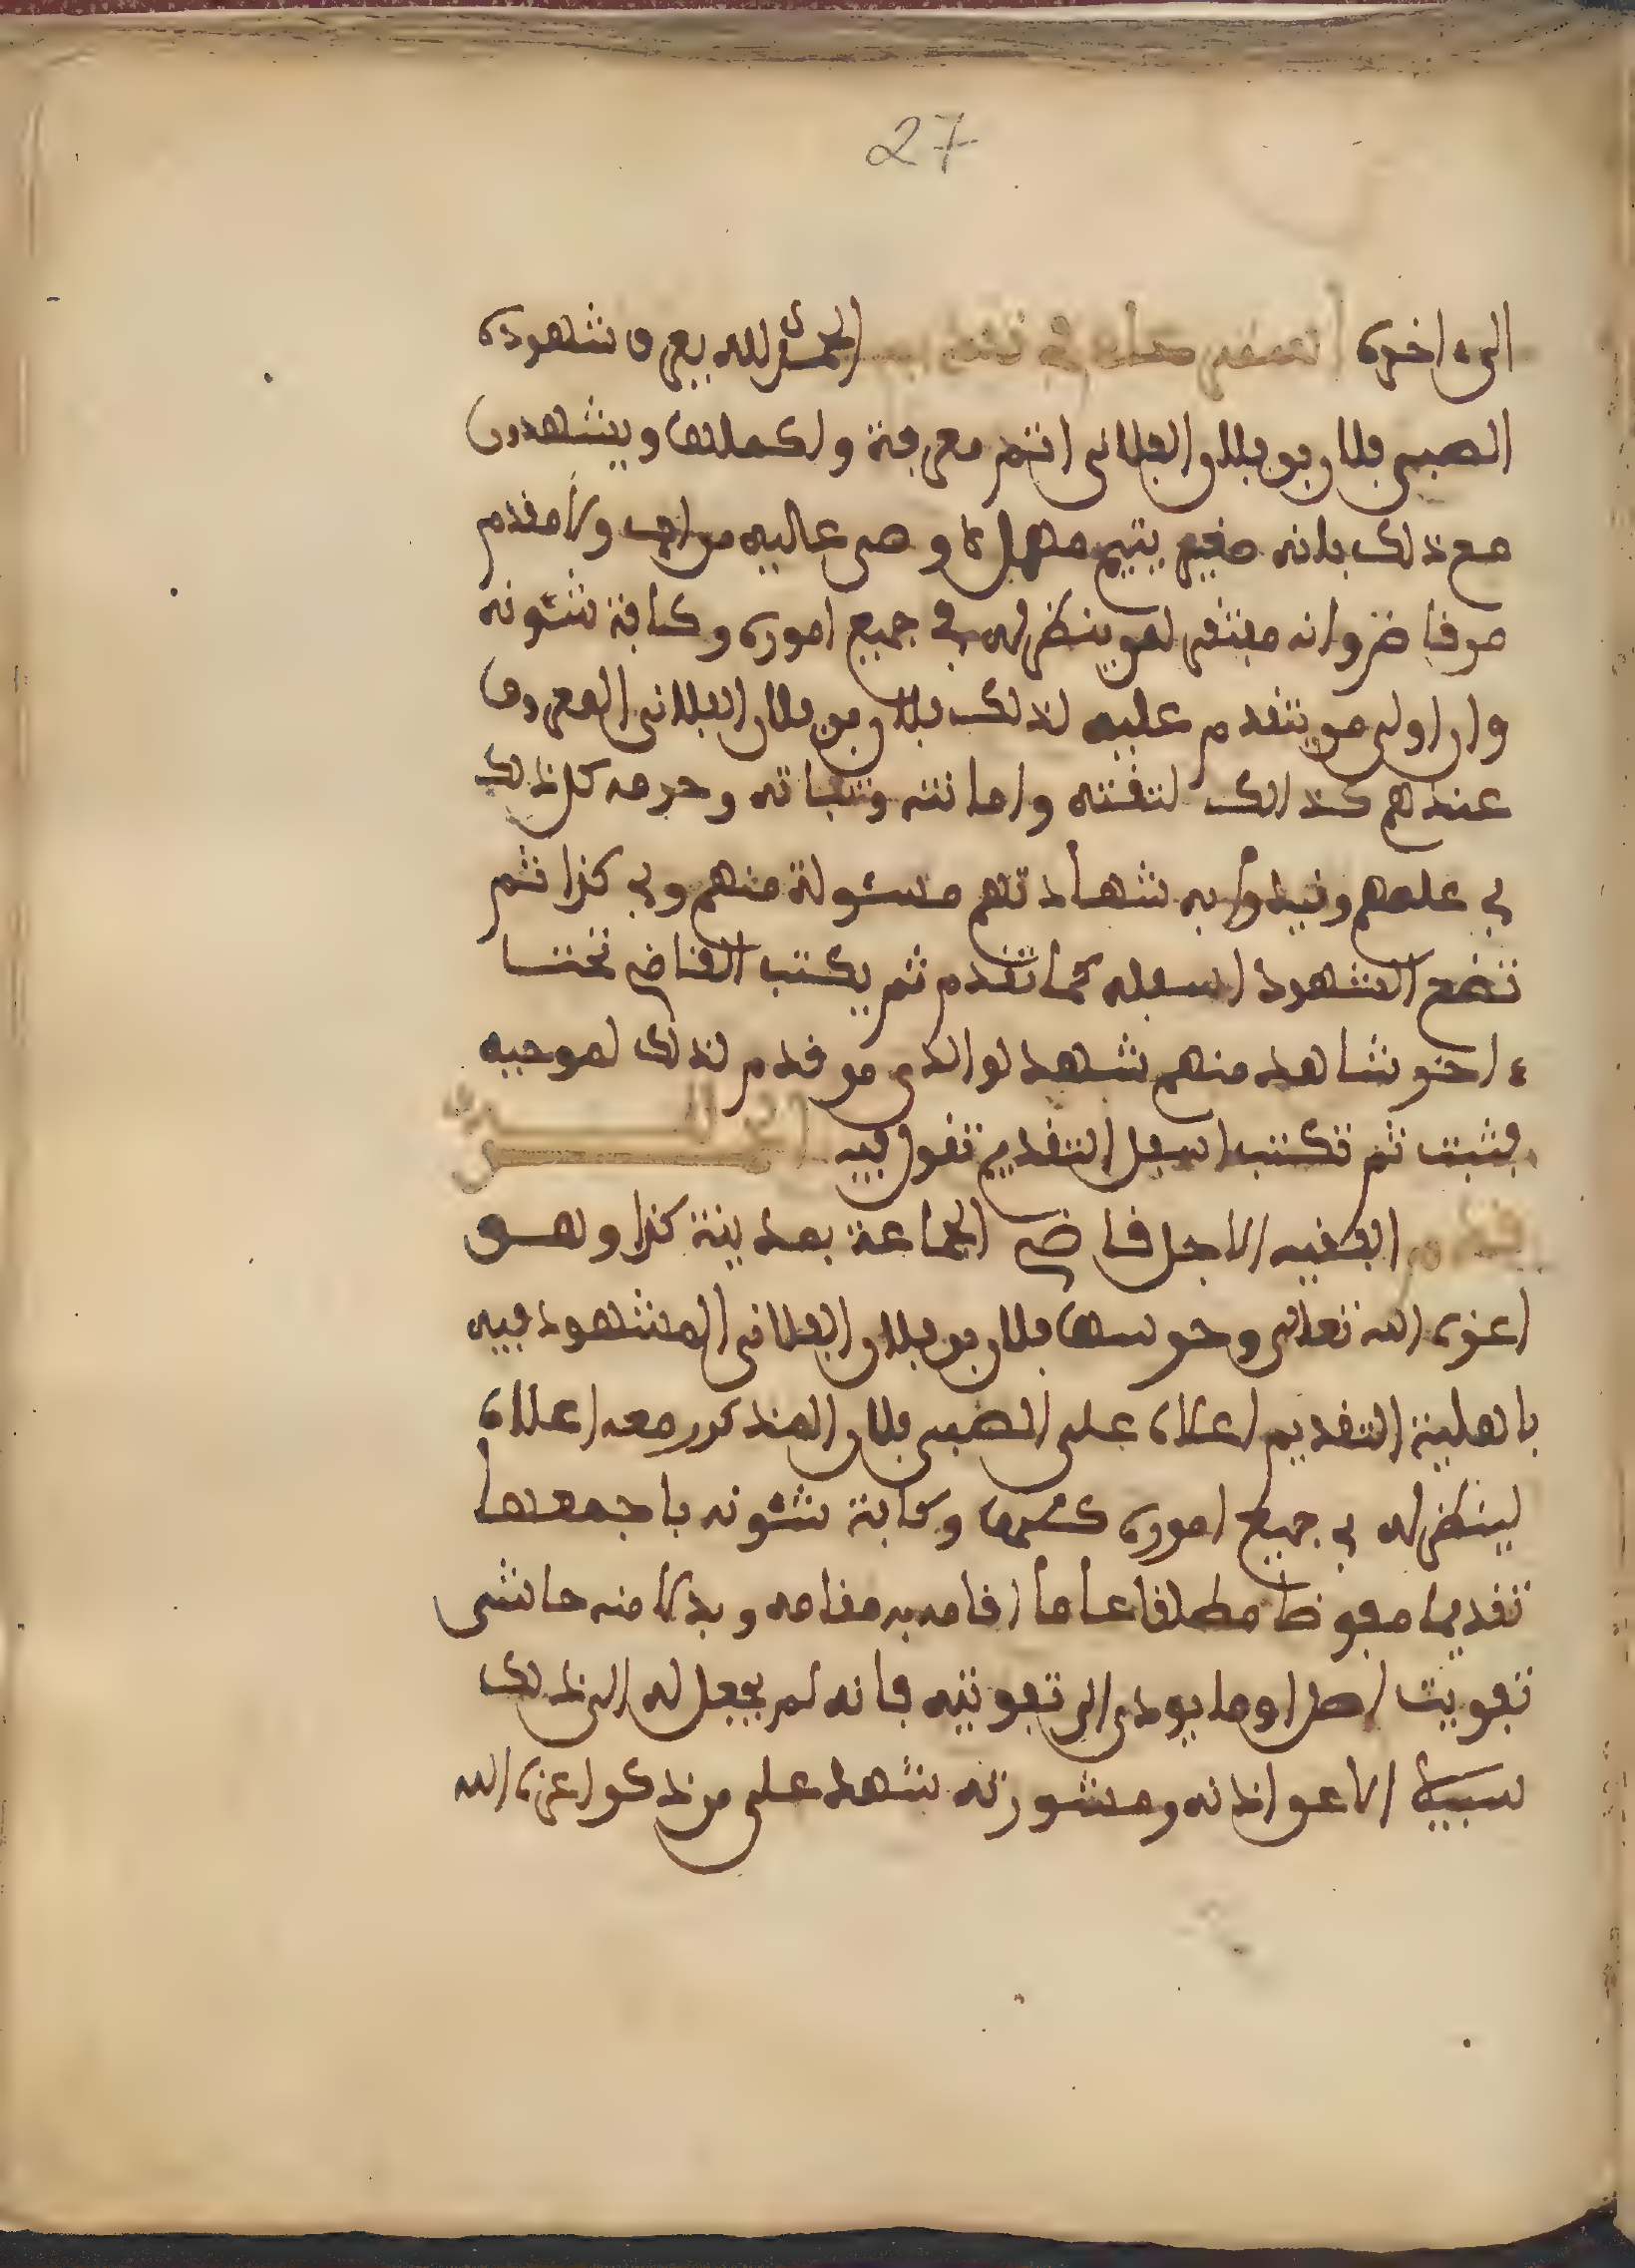 27
الى ءاخره الحمد لله يعرف شهوده
الصبي فلان بن فلان الفلاني اتم معرفة واكملها ويشهدون
مع ذلك بانه صغير يتيم مهمل لا وصي عليه من اب ولا مقدم
من قاض وانه مفتقر لمن ينظر له في جميع اموره وكافة شئونه
وان اولى من يتقدم عليه لذلك فلان بن فلان الفلاني المعروف
عندهم كذالك لثقته وامانته وثباته وحزمه كل ذلك
في علمهم وقيدوا به شهادتهم مسئولة منهم وفي كذا ثم
تضع الشهود اسفله كما تقدم ثم يكتب القاضي تحت
ءاخر شاهد منهم شهد لوالدي من قدم لذلك لموجبه
فثبت ثم تكتب اسفل التقديم تقول فيه الحمد لله
قدم الفقيه الاجل قاضي الجماعة بمدينة كذا وهو
اعزه الله تعالى وحرسها فلان بن فلان الفلاني المشهود فيه
باهلية التقديم اعلاه على الصبي فلان المذكور معه اعلاه
لينظر له في جميع اموره كلها وكافة شئونه باجمعها
تقديما مفوضا مطلقا عاما اقامه به مقامه وبدلا منه حاشى
تفويت اصل او ما يودي الى تفويته فانه لم يجعل له الى ذلك
سبيلا الا عن اذنه ومشورته شهد على من ذكر اعزه الله